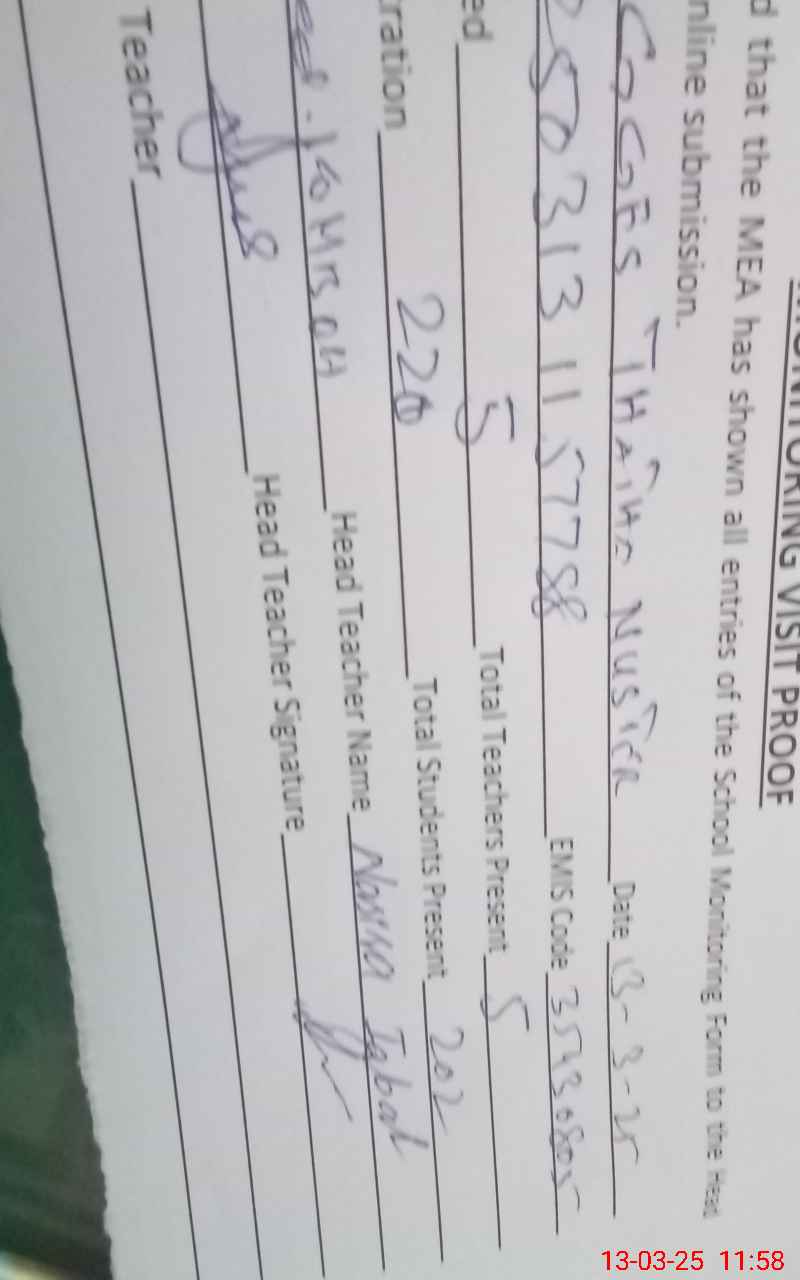 MONITORING VISIT PROOF
d that the MEA has shown all entries of the School Monitoring Form to the Head
nline submission.
GGES Date 13-3-25
2503131157758 EMIS Code 35430805
ed 5 Total Teachers Present 5
ration 220 Total Students Present 202
Head Teacher Name Nasira Iqbal
Head Teacher Signature
Teacher
13-03-25 11:58